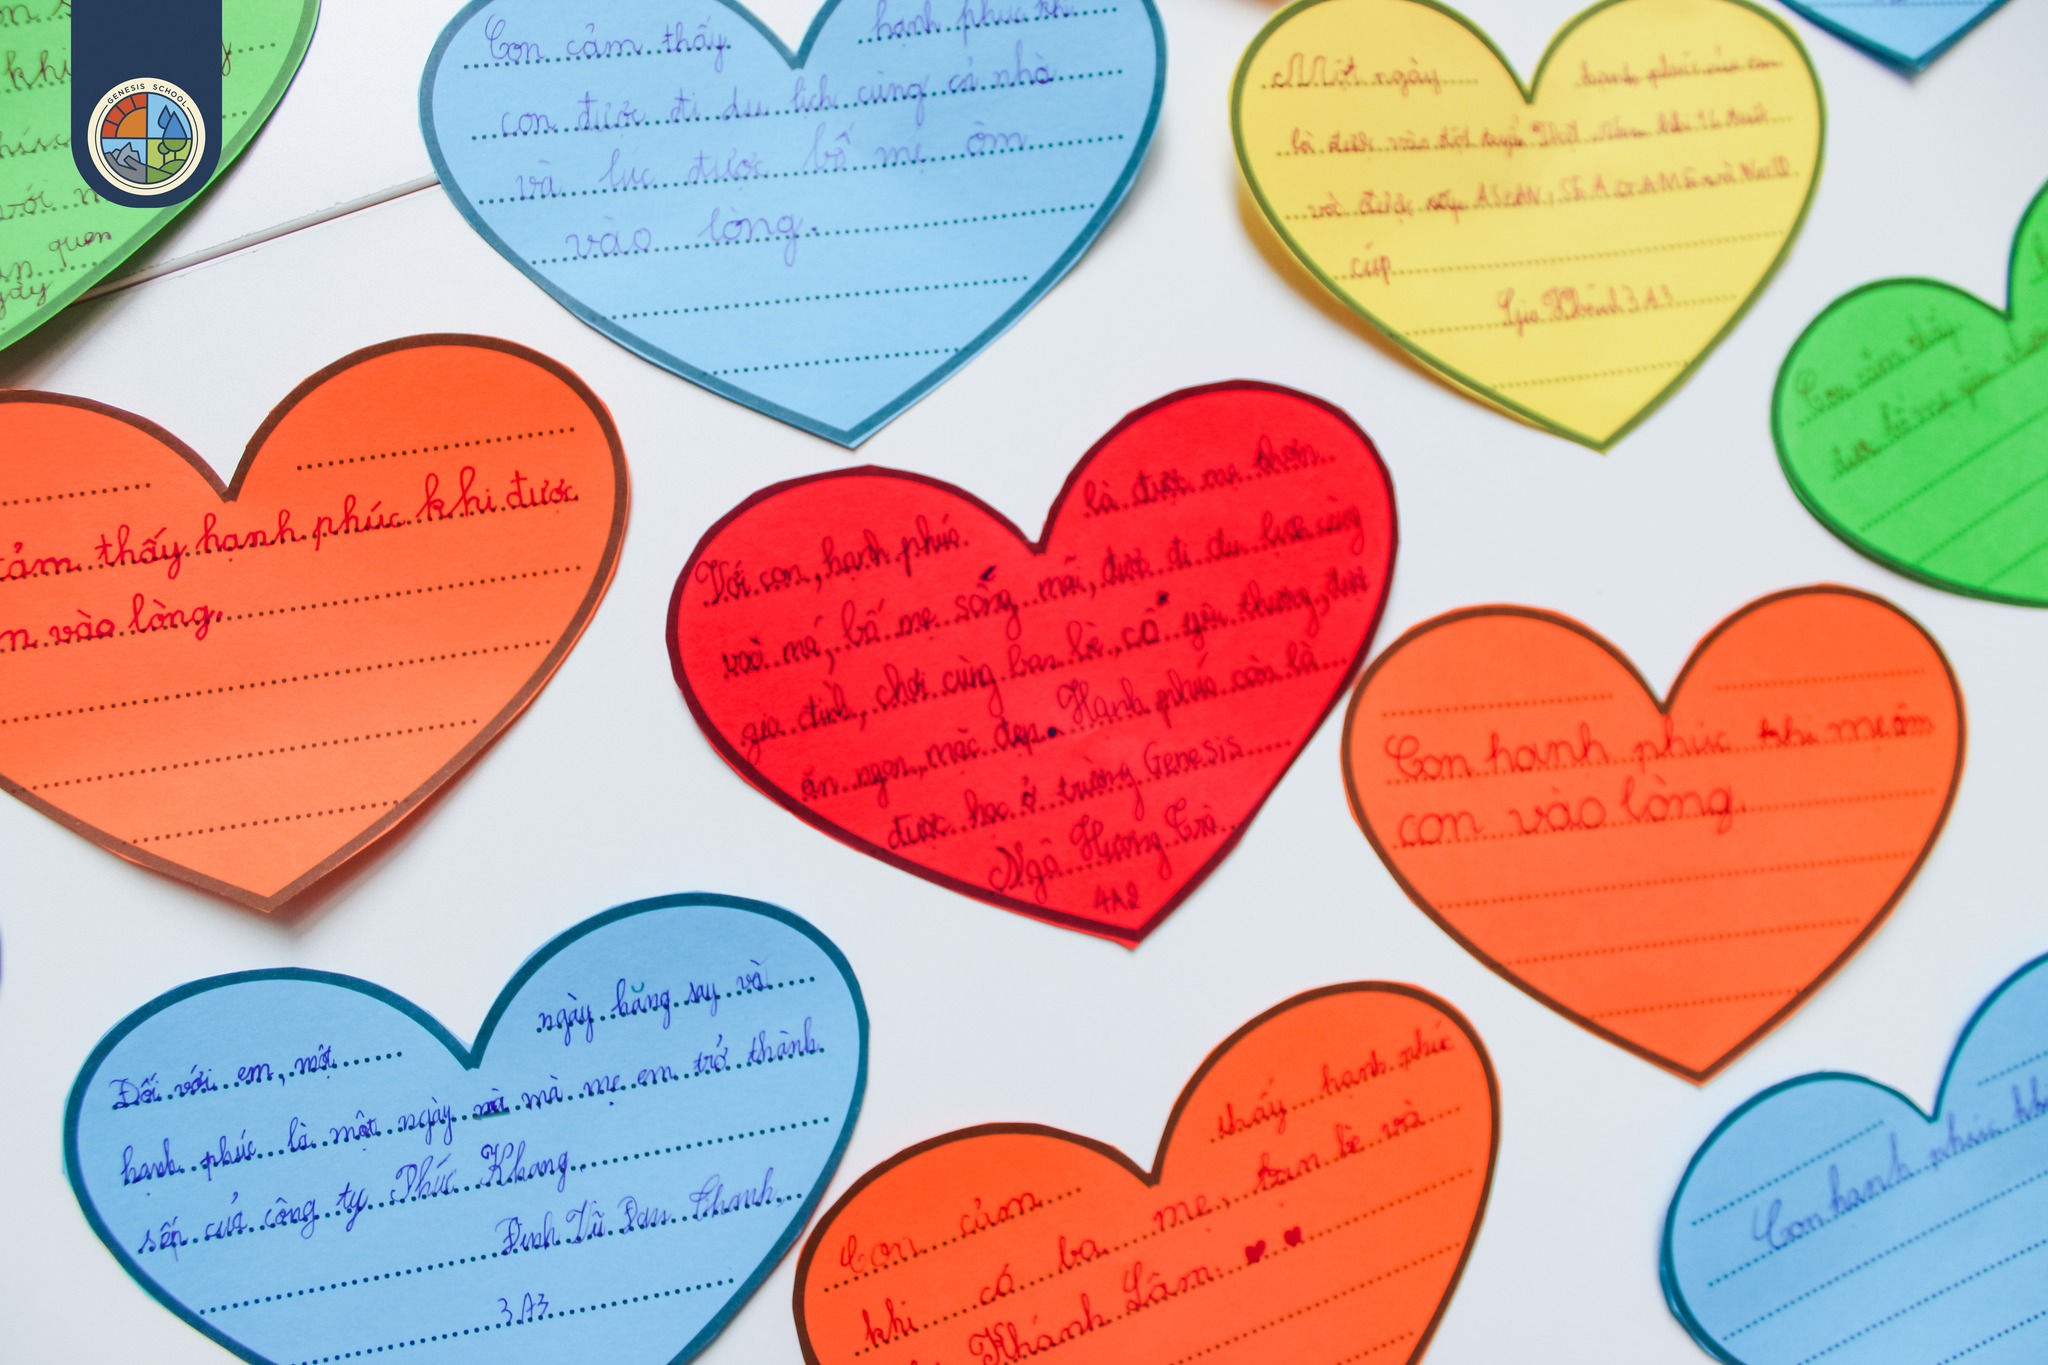 GENESIS SCHOOL
khi
với
quen
Con cảm thấy hạnh phúc khi
con được đi du lịch cùng cả nhà
và lúc được bố mẹ ôm
vào lòng.
Một ngày hạnh phúc của con
là được vào đội tuyển Việt Nam khi 16 tuổi
và được ASEAN, SEAGAME và World
cúp
Gia Khánh 3A3
Con cảm thấy
cảm thấy hạnh phúc khi được
vào lòng.
Với con, hạnh phúc là được mẹ thơm
vào má, bố mẹ sống mãi, được đi du lịch cùng
gia đình, chơi cùng bạn bè, cô yêu thương, được
ăn ngon, mặc đẹp. Hạnh phúc còn là
được học ở trường Genesis
Ngô Hương Trà
4A2
Con hạnh phúc khi mẹ ôm
con vào lòng.
Đối với em, một ngày hăng say và
hạnh phúc là một ngày mà mẹ em trở thành
sếp của công ty Phúc Khang.
Đinh Vũ Đan Thanh
3A3
Con cảm thấy hạnh phúc
khi có ba mẹ, bạn bè và
Khánh Lâm. ♥ ♥
Con hạnh phúc khi